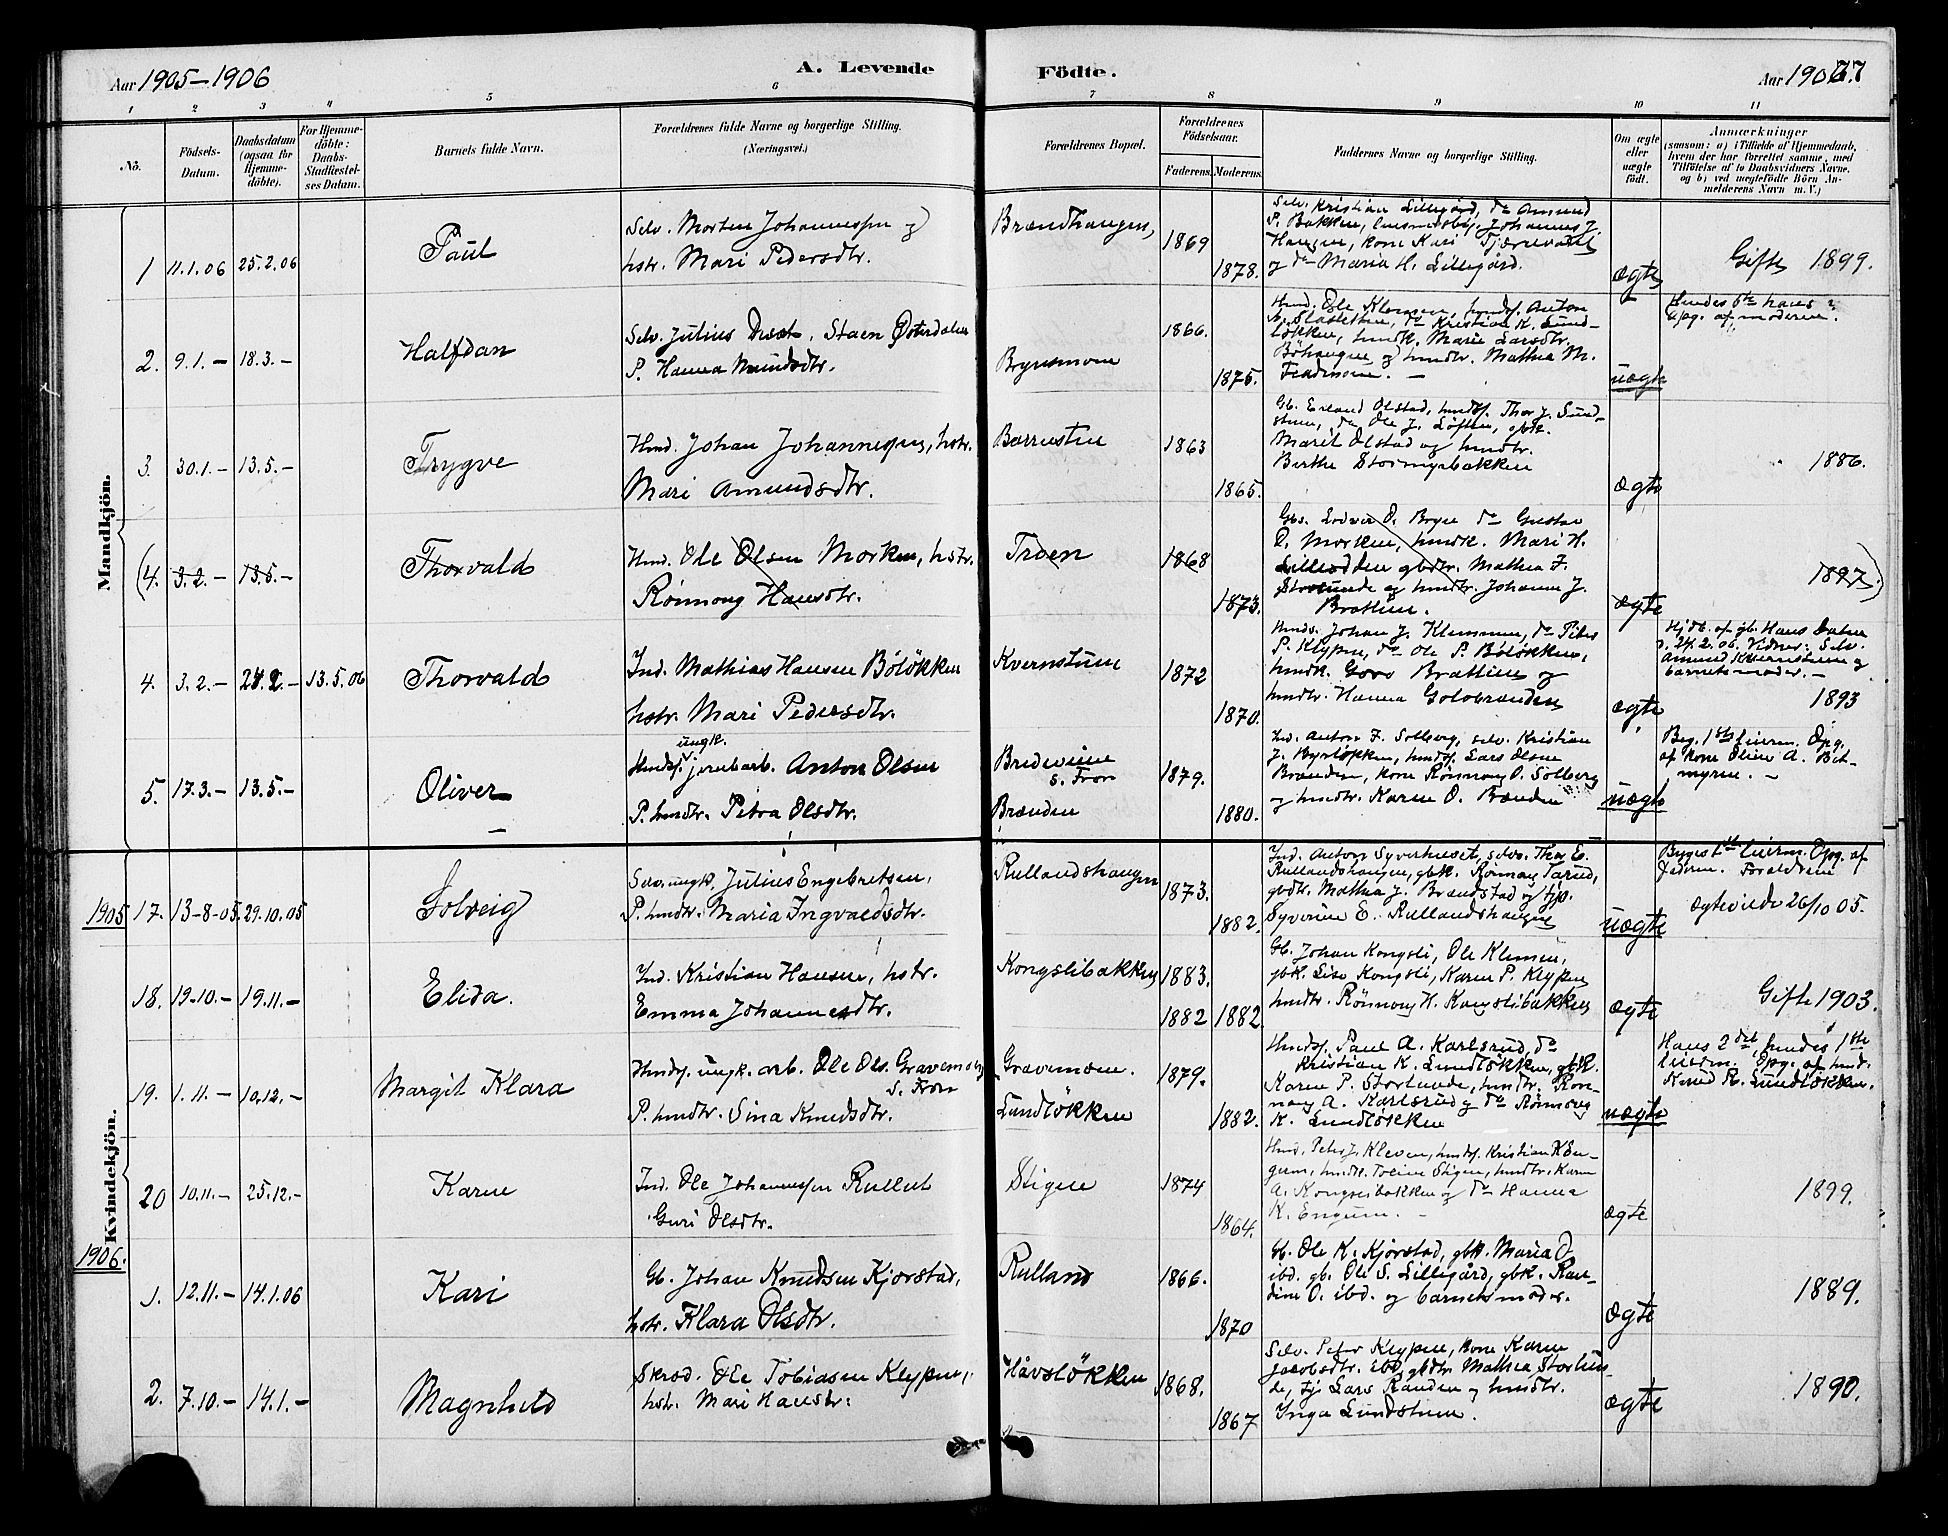 Aar 1905-1906
A. Levende
Födte.
Aar 1906
77
1 2 3 4 5 6 7 8 9 10 11
No.
Födsels-
Datum.
Daabsdatum
(ogsaa for
Hjemme-
döbte).
For Hjemme-
döbte:
Daabs-
Stadfæstel-
ses Datum.
Barnets fulde Navn.
Forældrenes fulde Navne og borgerlige Stilling.
(Næringsvei.)
Forældrenes Bopæl.
Forældrenes
Födselsaar.
Faderens. Moderens.
Faddernes Navne og borgerlige Stilling.
Om ægte
eller
uægte
født.
Anmærkninger
(saasom: a) i Tilfælde af Hjemmedaab,
hvem der har forrettet samme, med
Tilføielse af to Daabsvidners Navne.
og b) ved uægtefödte Börn An-
melderens Navn m. V.)
Mandkjön.
1 11.1.06 25.2.06
Paul
Selv. Morten Johannessen og
hstr. Mari Pedersdtr.
Brændhaugen,
1869
1878.
Selv. Kristian Lillegård, do Amund
P. Bakken, Johannes J.
Haugen, kone Kari
og do Maria H. Lillegård.
ægte
Gifte 1899.
2. 9.1.- 18.3.-
Halfdan
Selv. Julius
P. Hanna
Brynsmoen
1866.
1875.
Hmd. Ole Klemmen, hmdsf. Anton
do Kristian K. Lund-
løkken, hmdk. Marie Larsdtr.
Böhaugen og hmdtr. Mathea M.
uægte
Opg. af moderen.
3. 30.1.- 13.5.-
Trygve
Hmd. Johan Johannesen, hstr.
Mari Amundsdtr.
1863
1865.
Gb. Erland Olstad, hmdsf. Thor J. Lund-
stuen, do Ole J. Løften, gbk.
Marit Olstad og hmdtr.
Berthe Stormyrbakken
ægte
1886.
(4. 3.2.- 13.5.-
Thorvald
Hmd. Ole Olsen Morken, hstr.
Rönnaug Hansdtr.
Troen
1868
1873.
O. Bryn do Gustav
O. Morken, hmdk. Mari H.
gbdtr. Mathea F.
og hmdtr. Johanne J.
Brattien.
ægte
1897)
4. 3.2.- 24.2.- 13.5.06
Thorvald
Ind. Mathias Hansen Bölökken
hstr. Mari Pedersdtr.
Kvernstuen
1872
1870.
Hmds. Johan J. Klemmen, do Peter
P. Klypen, do Ole P. Bölökken,
hmdk. Goro Brattien og
hmdtr. Hanna Golobranden
ægte
Hjdt. af gb. Hans
24.2.06. Vidner: Selv.
Amund Kvernstuen og
barnets moder.-
1893
5. 17.3.- 13.5.-
Oliver
ungk.
Hmdsf. jernbarb. Anton Olsen
P. hmdtr. Petra Olsdtr.
s. Fron
Brænden
1879.
1880.
Ind. Anton F. Solberg, selv. Kristian
J. hmdsf. Lars Olsen
Brænden, kone Rønnaug O. Solberg
og hmdtr. Karen O. Brænden
uægte
Beg. 1ste leierm. Opg.
af kone Oline A.
myren. -
Kvindekjön.
1905
17. 13-8-05. 29.10.05
Solveig
Selv. ungk. Julius Engebretsen,
P. hmdtr. Maria Ingvaldsdtr.
Rullandshaugen
1873.
1882.
Ind. Anton Syverhuset, selv. Thor E.
Rullandshaugen, gbk. Rönnaug
gbdtr. Mathea J. Brandstad og tjp.
Syverine E. Rullandshaugen
uægte
Begges 1ste leierm. Opg. af
Faderen. Forældrene
ægteviede 26/10 05.
18. 19-10.- 19.11.-
Elida.
Ind. Kristian Hansen, hstr.
Emma Johannesdtr.
Kongslibakken
1883.
1882 1882.
Gb. Johan Kongsli, Ole Klemmen,
gbk. Lise Kongsli, Karen P. Klypen
hmdtr. Rönnaug H. Kongslibakken
ægte
Gifte 1903.
19. 1.11.- 10.12.-
Margit Klara
Hmdsf. ungk. arb. Ole Ols. Gravemoen
s. Fron
P. hmdtr. Sina Knudsdtr.
Gravemoen.
Lundløkken
1879.
1882.
Hmdsf. Paul A. Karlsrud, do
Kristian K. Lundløkken, gbk.
Karen P. Storlunde, hmdtr. Røn-
naug A. Karlsrud og do Rønnaug
K. Lundløkken
uægte
Hans 2det hendes 1ste
leierm. Opg. af hmd.
Knud R. Lundløkken.
20 10.11.- 25.12.-
Karen
Ind. Ole Johannessen Rullut
Guri Olsdtr.
Stigen
1874
1864.
Hmd. Peter J. Kleven, hmdsf. Kristian K En-
gum, hmdk. Stigen, hmdtr. Karen
A. Kongslibakken og do Hanna
K. Engum. -
ægte
1899.
1906.
1. 12.11.- 14.1.06
Kari
Gb. Johan Knudsen Kjorstad,
hstr. Klara Olsdtr.
Rulland
1866.
1870
Gb. Ole K. Kjørstad, gbk. Maria O
ibd. gb. Ole S. Lillegård, gbk. Ran-
dine O. ibd. og barnets moder.
ægte
1889.
2. 7.10.- 14.1.-
Magnhild
Skræd. Ole Tobiasen Klypen,
hstr. Mari Hansdtr.
Håvsløkken
1868.
1867
Selv. Peter Klypen, kone Karen
Jacobsdtr. ibd, gbdtr. Mathea Storlun-
de, tj. Lars Randen og hmdtr.
Inga Lundstuen.
ægte
1890.